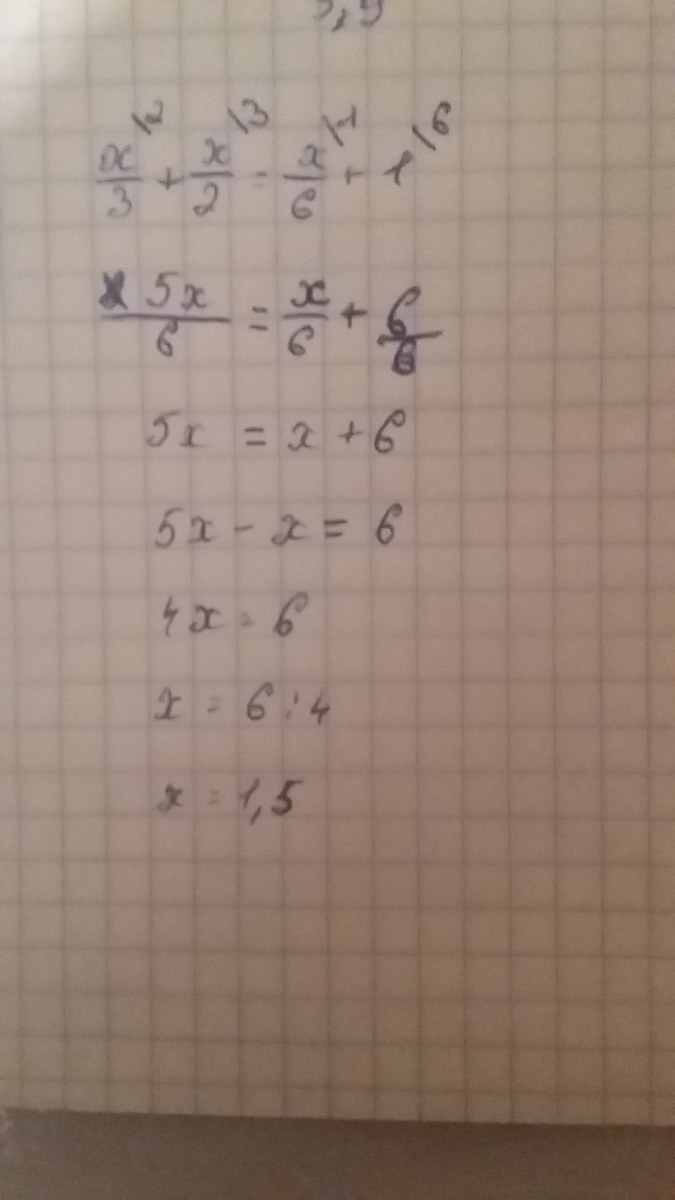 x/3 /2 + x/2 /3 = x/6 /1 + 1 /6
5x/6 = x/6 + 6/6
5x = x + 6
5x - x = 6
4x = 6
x = 6 : 4
x = 1,5